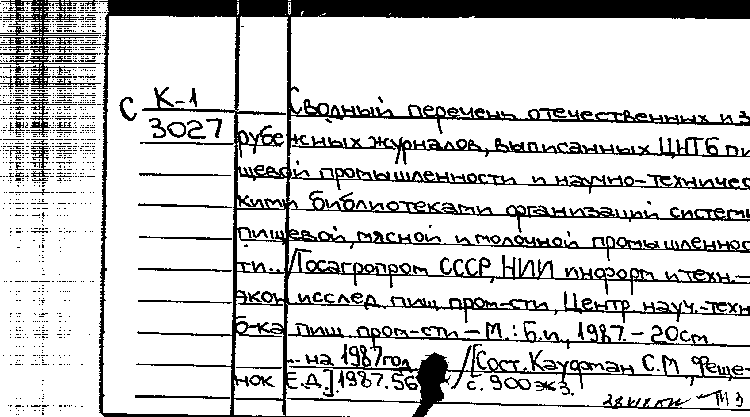 С К-1
3027
Сводный перечень отечественных и за
рубежных журналов, выписанных ЦНТБ пи
щевой промышленности и научно-техничес
кими библиотеками организаций систем
пищевой, мясной и молочной промышленнос
ти... /Госагропром СССР, НИИ информ и техн.-
экон исслед. пищ пром-сти, Центр науч.-техн
б-ка пищ пром-сти - М.: Б.и, 1987. - 20см
...на 1987год /[Сост. Кауфман С.М, Феще-
нок Е.Д.]. 1987. 56 с. 900 экз.